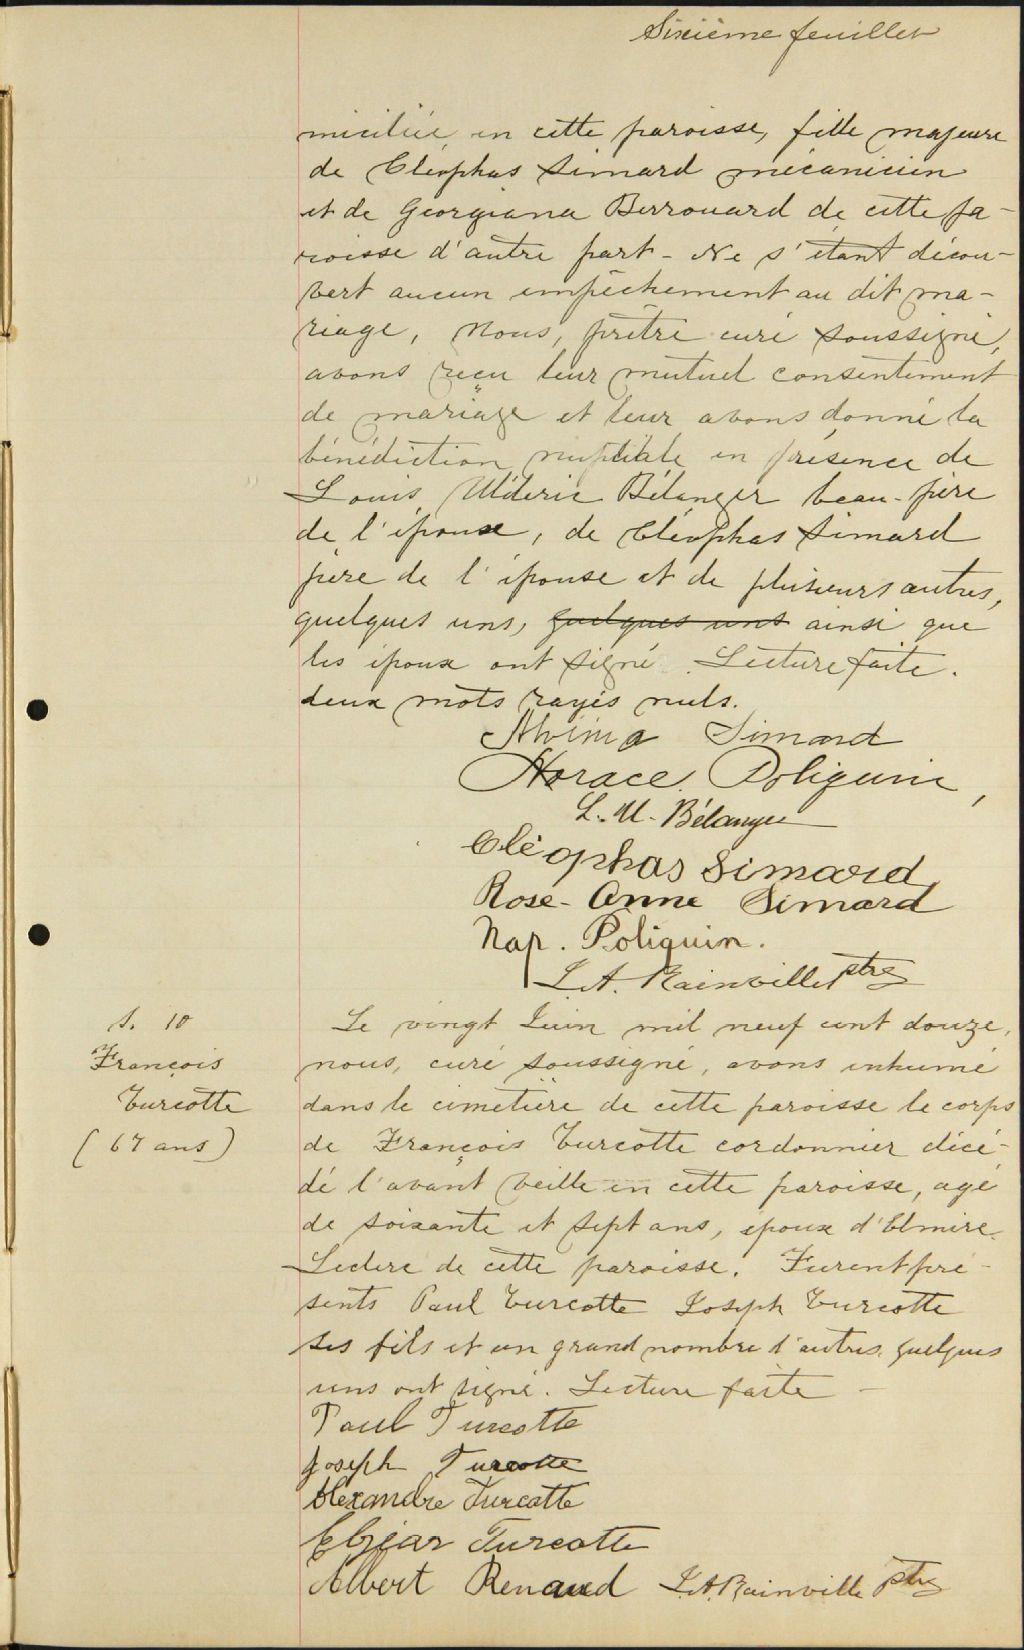 Sixième feuillet
miciliée en cette paroisse, fille majeure
de Cléophas Simard mécanicien
et de Georgiana Berrouard de cette pa-
roisse d'autre part - Ne s'étant décou-
vert aucun empêchement au dit ma-
riage, Nous, prêtre curé soussigné,
avons reçu leur mutuel consentement
de mariage et leur avons donné la
bénédiction nuptiale en présence de
Louis Uldéric Bélanger beau-père
de l'époux, de Cléophas Simard
père de l'épouse et de plusieurs autres,
quelques uns, quelques uns ainsi que
les époux ont signé. Lecture faite.
deux mots rayés nuls.
Alvina Simard
Horace Poliquin,
L. U. Bélanger
Cléophas Simard
Rose-Anne Simard
Nap. Poliquin.
J. A. Rainville ptre
S. 10
François
Turcotte
(67 ans)
Le vingt Juin mil neuf cent douze,
nous, curé soussigné, avons inhumé
dans le cimetière de cette paroisse le corps
de François Turcotte cordonnier décé-
dé l'avant veille en cette paroisse, agé
de soixante et sept ans, époux d'Elmire
Leclerc de cette paroisse. Furent pré-
sents Paul Turcotte Joseph Turcotte
ses fils et un grand nombre d'autres. quelques
uns ont signé. Lecture faite -
Paul Turcotte
Joseph Turcotte
Alexandre Turcotte
Elzéar Turcotte
Albert Renaud J. A. Rainville ptre